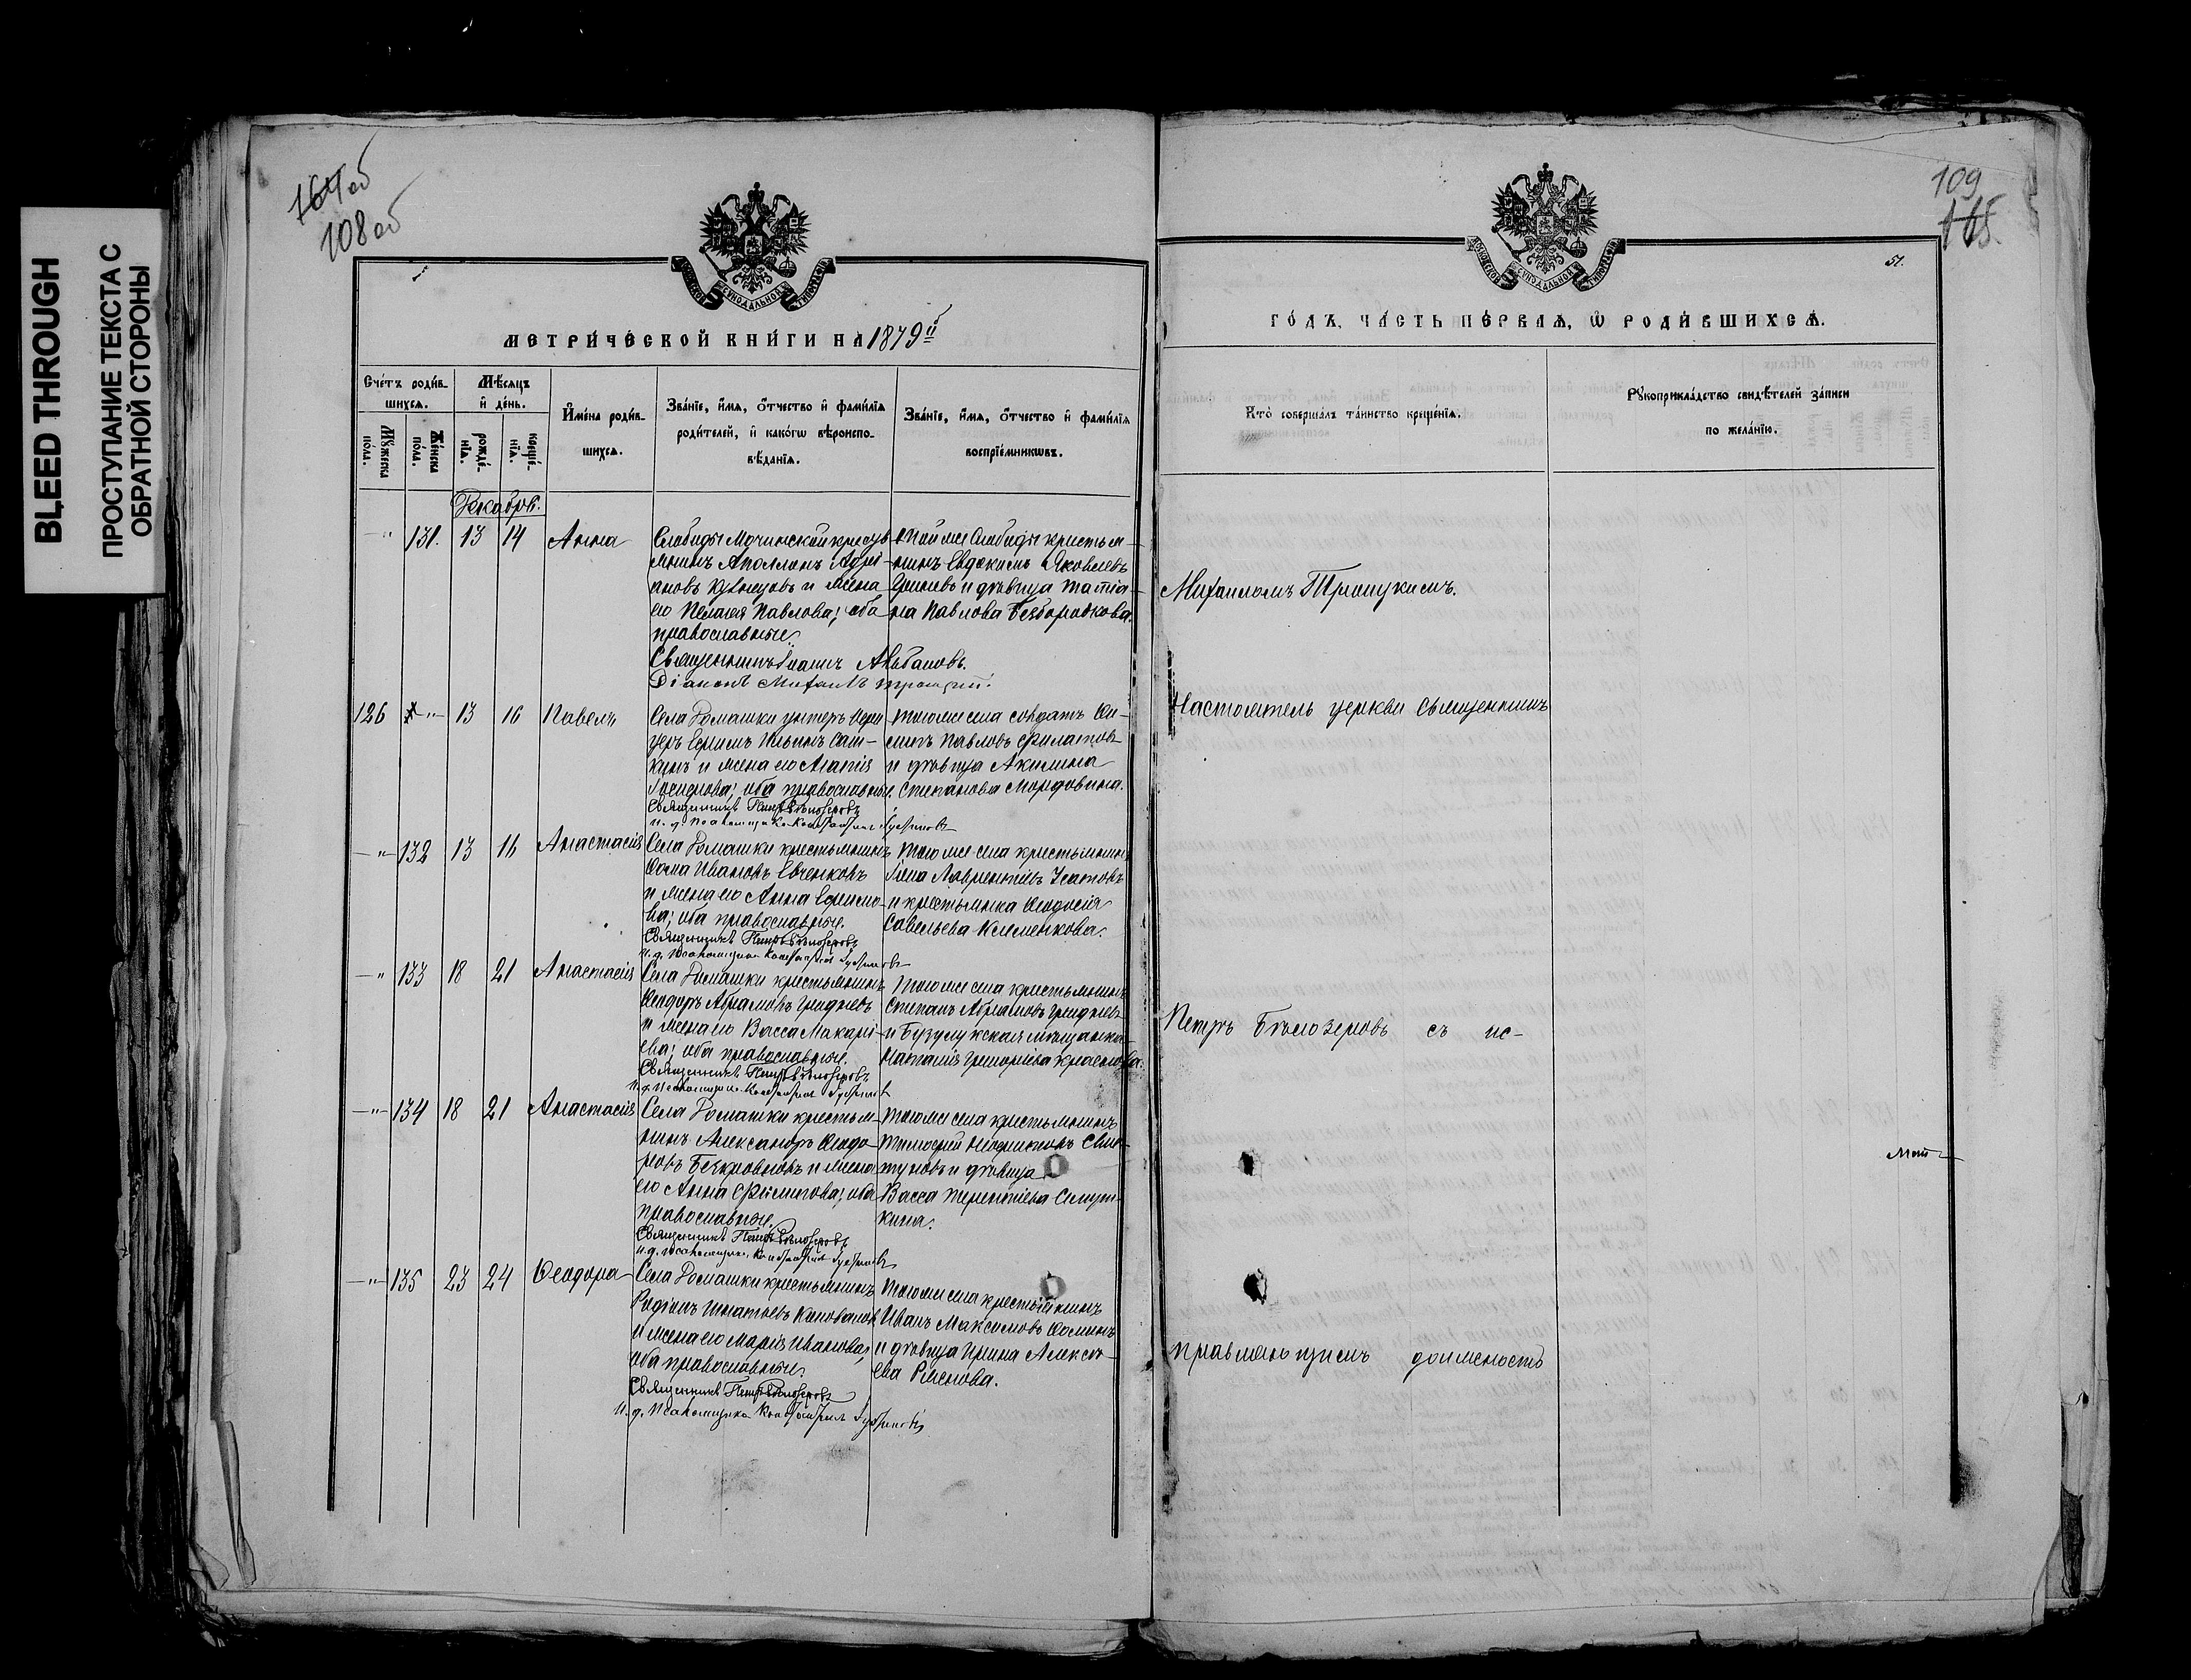 BLEED THROUGH
ПРОСТУПАНИЕ ТЕКСТА С
ОБРАТНОЙ СТОРОНЫ
164об
108об
МОСКОВСКОЙ СѴНОДАЛЬНОЙ ТИПОГРАФІИ
МЕТРИ́ЧЕСКОЙ КНИ́ГИ НА 1879й
Сче́тъ роди́в-
шихсѧ.
Мѣ́сѧцъ
и҆ де́нь.
Мꙋ́жеска
по́ла.
Же́нска
по́ла.
рожде́-
нїѧ.
креще́-
нїѧ.
И҆мена̀ роди́в-
шихсѧ.
Зва́нїе, и҆́мѧ, ѻ҆́тчество и҆ фами́лїѧ
роди́телей, и҆ како́гѡ вѣроиспо-
вѣ́данїѧ.
Зва́нїе, и҆́мѧ, ѻ҆́тчество и҆ фами́лїѧ
воспрїе́мникѡвъ.
Декабрь.
-"- 131. 13 14 Анна
Слободы Мочинской кресть
янинъ Аполлонъ Адрі-
ановъ Кузнецовъ и жена
его Пелагея Павлова; оба
православные.
Священникъ Іоаннъ
Діаконъ Михаилъ Троицкій.
Той же Слободы крестья-
нинъ Евдокимъ Яковлевъ
и дѣвица Татіа-
на Павлова Безбородкова.
126 -"- 13 16 Павелъ
Села Ромашки унтеръ офи
церъ Ефимъ Ильинъ Сат-
кинъ и жена его Агапія
оба православные.
Священникъ Петръ Бѣлозеровъ
И. д. Псаломщика
Того же села солдатъ Си-
Павловъ Филатовъ
и дѣвица Акилина
Степанова Мордовина.
-"- 132 13 16 Анастасія
Села Ромашки крестьянинъ
Ѳома Ивановъ Евченковъ
и жена его Анна Ефимо-
ва; оба православные.
Священникъ Петръ Бѣлозеровъ
И. д. Псаломщика
Того же села крестьянинъ
Лаврентіевъ Усатовъ
и крестьянка Ѳеодосія
Савельева Клименкова.
-"- 133 18 21 Анастасія
Села Ромашки крестьянинъ
Ѳеодоръ Абрамовъ Гридневъ
и жена его Васса Макарі-
ева; оба православные.
Священникъ Петръ Бѣлозеровъ
И. д. Псаломщика
Того же села крестьянинъ
Степанъ Абрамовъ Гридневъ
и Бузулукская мѣщанка
Наталія Григорьева Краснова.
-"- 134 18 21 Анастасія
Села Ромашки крестья-
нинъ Александръ Ѳеодо-
ровъ Безкровновъ и жена
его Анна Филипова; оба
православные.
Священникъ Петръ Бѣлозеровъ
И. д. Псаломщика
Того же села крестьянинъ
Тимофей
и дѣвица
Васса Терентіева Слут-
кина.
-"- 135 23 24 Ѳеодора
Села Ромашки крестьянинъ
Родіонъ Игнатьевъ Коноваловъ
и жена его Марія Иванова;
оба православные.
Священникъ Петръ Бѣлозеровъ
И. д. Псаломщика
Того же села крестьянинъ
Иванъ Максимовъ Ѳоминъ
и дѣвица Ирина Алексѣ-
ева
109
165.
51.
МОСКОВСКОЙ СѴНОДАЛЬНОЙ ТИПОГРАФІИ
ГО́ДЪ, ЧА́СТЬ ПЕ́РВАѦ, Ѡ҆ РОДИ́ВШИХСѦ.
Кто̀ соверша́лъ та́инство креще́нїѧ.
Рꙋкоприкла́дство свидѣ́телей за́писи
по жела́нїю.
Михаиломъ Троицкимъ.
Настоятель церкви священникъ
Петръ Бѣлозеровъ съ ис-
правляющимъ должность